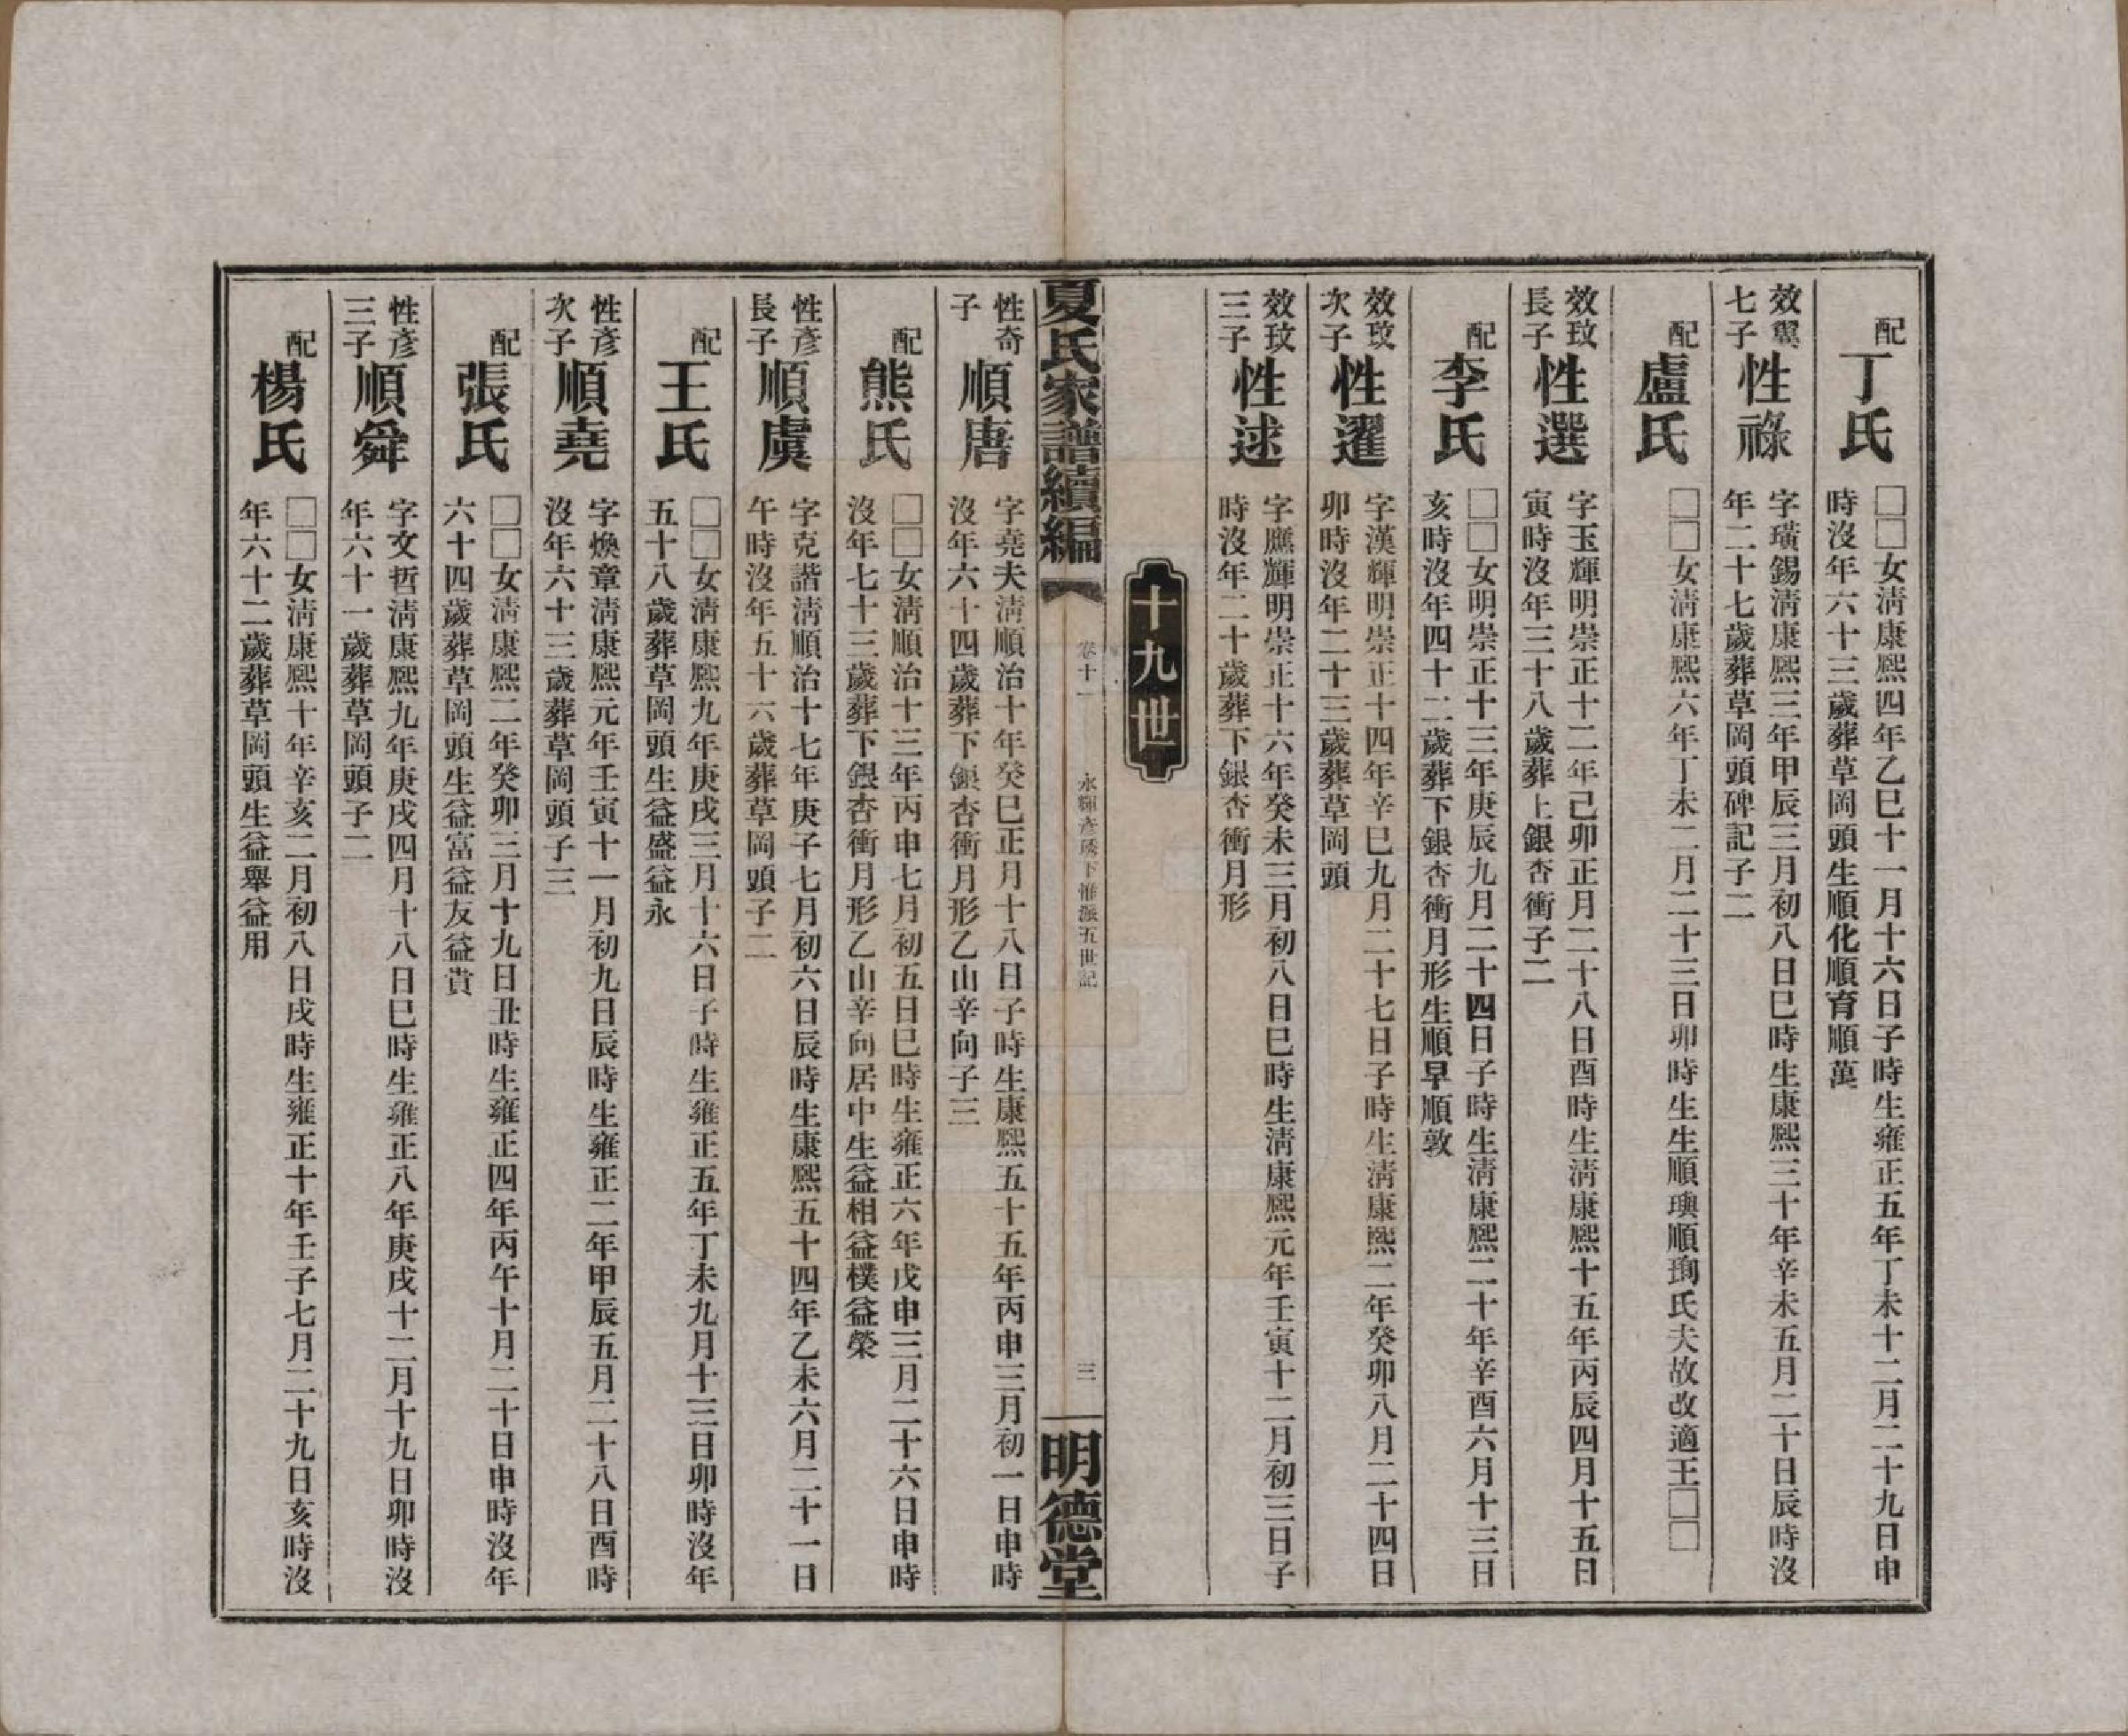 配
丁氏
□□女淸康熙四年乙巳十一月十六日子時生雍正五年丁未十二月二十九日申
時沒年六十三歲葬草岡頭生順化順育順萬
效翼
七子
性祿
字璜錫淸康熙三年甲辰三月初八日巳時生康熙三十年辛未五月二十日辰時沒
年二十七歲葬草岡頭碑記子二
配
盧氏
□□女淸康熙六年丁未二月二十三日卯時生生順璵順珣氏夫故改適王□□
效玟
長子
性選
字玉輝明崇正十二年己卯正月二十八日酉時生淸康熙十五年丙辰四月十五日
寅時沒年三十八歲葬上銀杏衝子二
配
李氏
□□女明崇正十三年庚辰九月二十四日子時生淸康熙二十年辛酉六月十三日
亥時沒年四十二歲葬下銀杏衝月形生順早順敦
效玟
次子
性選
字漢輝明崇正十四年辛巳九月二十七日子時生淸康熙二年癸卯八月二十四日
卯時沒年二十三歲葬草岡頭
效玟
三子
性逑
字鷹輝明崇正十六年癸未三月初八日巳時生淸康熙元年壬寅十二月初三日子
時沒年二十歲葬下銀杏衝月形
十九世
夏氏家譜續編
卷十一
永輝彥琇下惟派五世記
三
明德堂
性奇
子
順唐
字堯夫淸順治十年癸巳正月十八日子時生康熙五十五年丙申三月初一日申時
沒年六十四歲葬下銀杏衝月形乙山辛向子三
配
熊氏
□□女淸順治十三年丙申七月初五日巳時生雍正六年戊申三月二十六日申時
沒年七十三歲葬下銀杏衝月形乙山辛向居中生益相益樸益榮
性彥
長子
順虞
字克諧淸順治十七年庚子七月初六日辰時生康熙五十四年乙未六月二十一日
午時沒年五十六歲葬草岡頭子二
配
王氏
□□女淸康熙九年庚戌三月十六日子時生雍正五年丁未九月十三日卯時沒年
五十八歲葬草岡頭生益盛益永
性彥
次子
順堯
字煥章淸康熙元年壬寅十一月初九日辰時生雍正二年甲辰五月二十八日酉時
沒年六十三歲葬草岡頭子三
配
張氏
□□女淸康熙二年癸卯三月十九日丑時生雍正四年丙午十月二十日申時沒年
六十四歲葬草岡頭生益富益友益貴
性彥
三子
順舜
字文哲淸康熙九年庚戌四月十八日巳時生雍正八年庚戌十二月十九日卯時沒
年六十一歲葬草岡頭子二
配
楊氏
□□女淸康熙十年辛亥二月初八日戌時生雍正十年壬子七月二十九日亥時沒
年六十二歲葬草岡頭生益舉益用